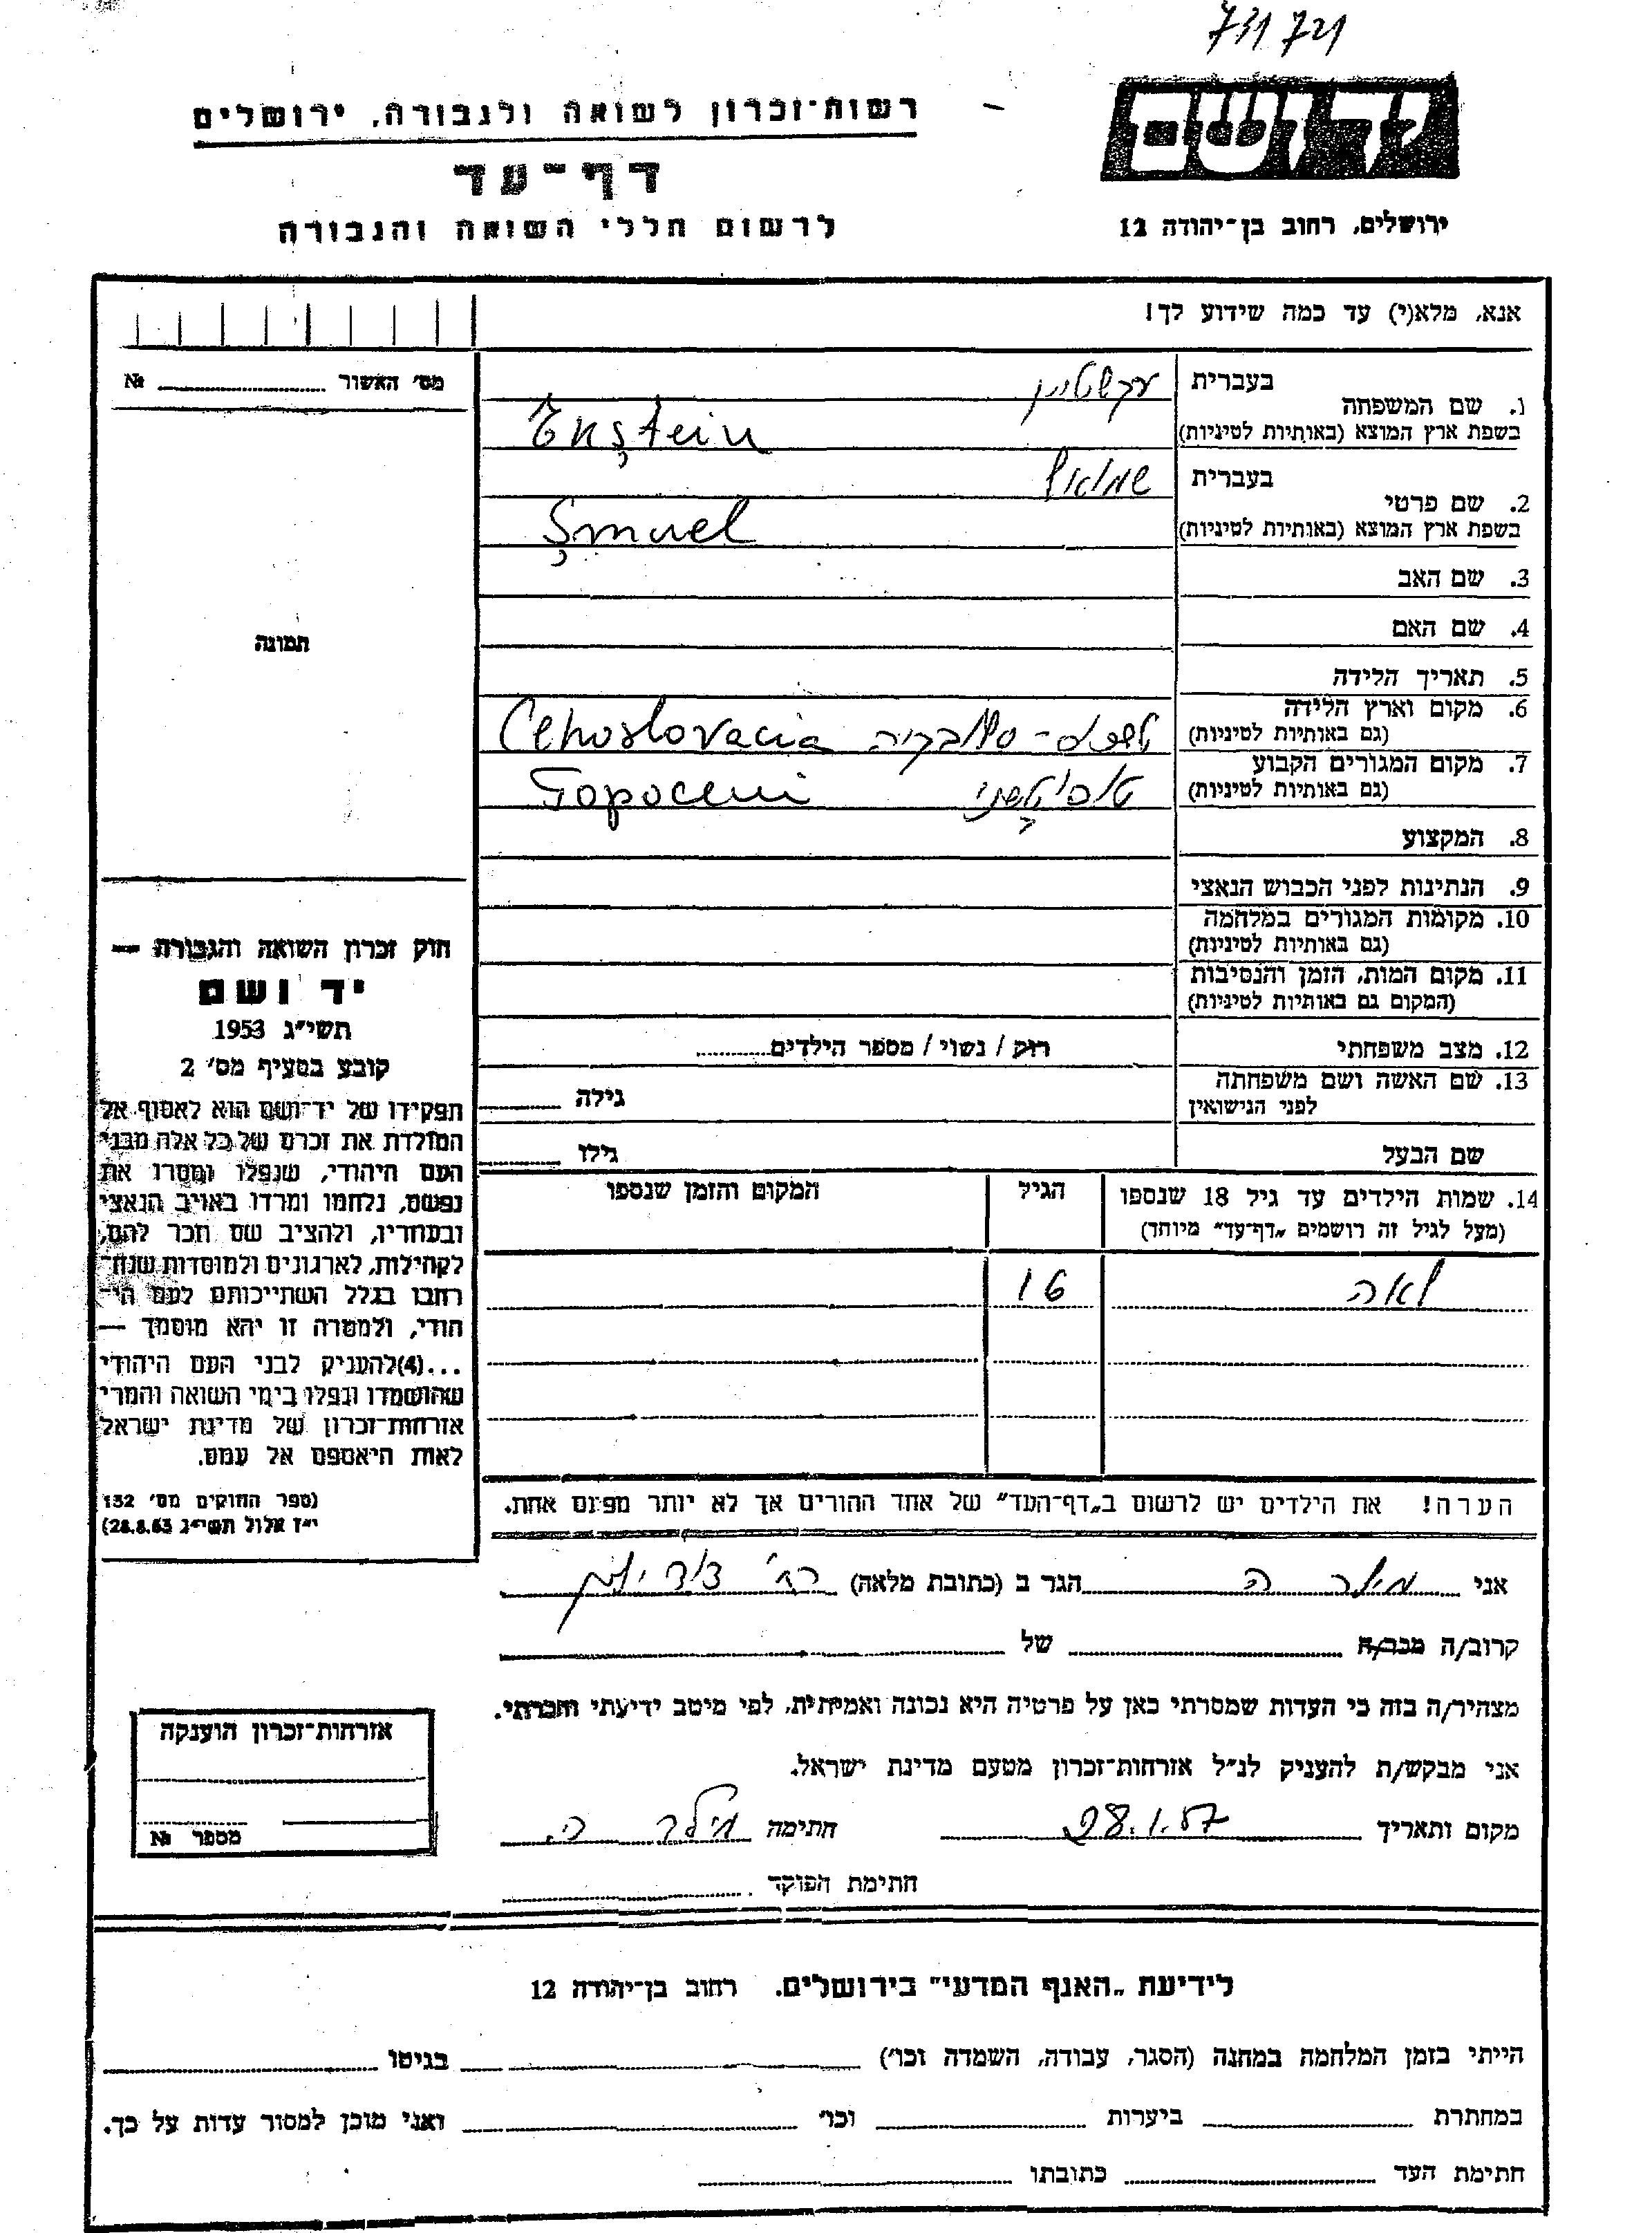 731721
רשות־זכרון לשואה ולגבורה, ירושלים
ידושם
דף־עד
לרשום חללי השואה והגבורה
ירושלים, רחוב בן־יהודה 12
אנא, מלא(י) עד כמה שידוע לך!
מס' האשור № 
1. שם המשפחה
בעברית עקשטיין
בשפת ארץ המוצא (באותיות לטיניות) Ekştein
2. שם פרטי
בעברית שמואל
בשפת ארץ המוצא (באותיות לטיניות) Şmuel
3. שם האב
4. שם האם
תמונה
5. תאריך הלידה
6. מקום וארץ הלידה
(גם באותיות לטיניות) Cehoslovacia
7. מקום המגורים הקבוע
(גם באותיות לטיניות) Topoceni
8. המקצוע
9. הנתינות לפני הכבוש הנאצי
10. מקומות המגורים במלחמה
(גם באותיות לטיניות)
11. מקום המות, הזמן והנסיבות
(המקום גם באותיות לטיניות)
12. מצב משפחתי רוק / נשוי / מספר הילדים
13. שם האשה ושם משפחתה
לפני הנישואין גילה
שם הבעל גילו
14. שמות הילדים עד גיל 18 שנספו הגיל המקום והזמן שנספו
(מעל לגיל זה רושמים "דף־עד" מיוחד)
לאה 16
הערה! את הילדים יש לרשום ב"דף־העד" של אחד ההורים אך לא יותר מפעם אחת.
חוק זכרון השואה והגבורה —
יד ושם
תשי"ג 1953
קובע בסעיף מס' 2
תפקידו של יד־ושם הוא לאסוף אל
המולדת את זכרם של כל אלה מבני
העם היהודי, שנפלו ומסרו את
נפשם, נלחמו ומרדו באויב הנאצי
ובעוזריו, ולהציב שם וזכר להם,
לקהילות, לארגונים ולמוסדות שנח־
רבו בגלל השתייכותם לעם הי־
הודי, ולמטרה זו יהא מוסמך —
...(4)להעניק לבני העם היהודי
שהושמדו ונפלו בימי השואה והמרי
אזרחות־זכרון של מדינת ישראל
לאות היאספם אל עמם.
(ספר החוקים מס' 132
י"ז אלול תשי"ג 28.8.53)
אני מילר ה הגר ב (כתובת מלאה)
קרוב/ה מכר/ה של
מצהיר/ה בזה כי העדות שמסרתי כאן על פרטיה היא נכונה ואמיתית, לפי מיטב ידיעתי והכרתי.
אני מבקש/ת להעניק לנ"ל אזרחות־זכרון מטעם מדינת ישראל.
מקום ותאריך 28.1.57 חתימה מילר ה.
חתימת הפוקד
אזרחות־זכרון הוענקה
מספר №
לידיעת "האנף המדעי" בירושלים. רחוב בן־יהודה 12
הייתי בזמן המלחמה במחנה (הסגר, עבודה, השמדה וכו') בגיטו
במחתרת ביערות וכו' ואני מוכן למסור עדות על כך.
חתימת העד כתובתו